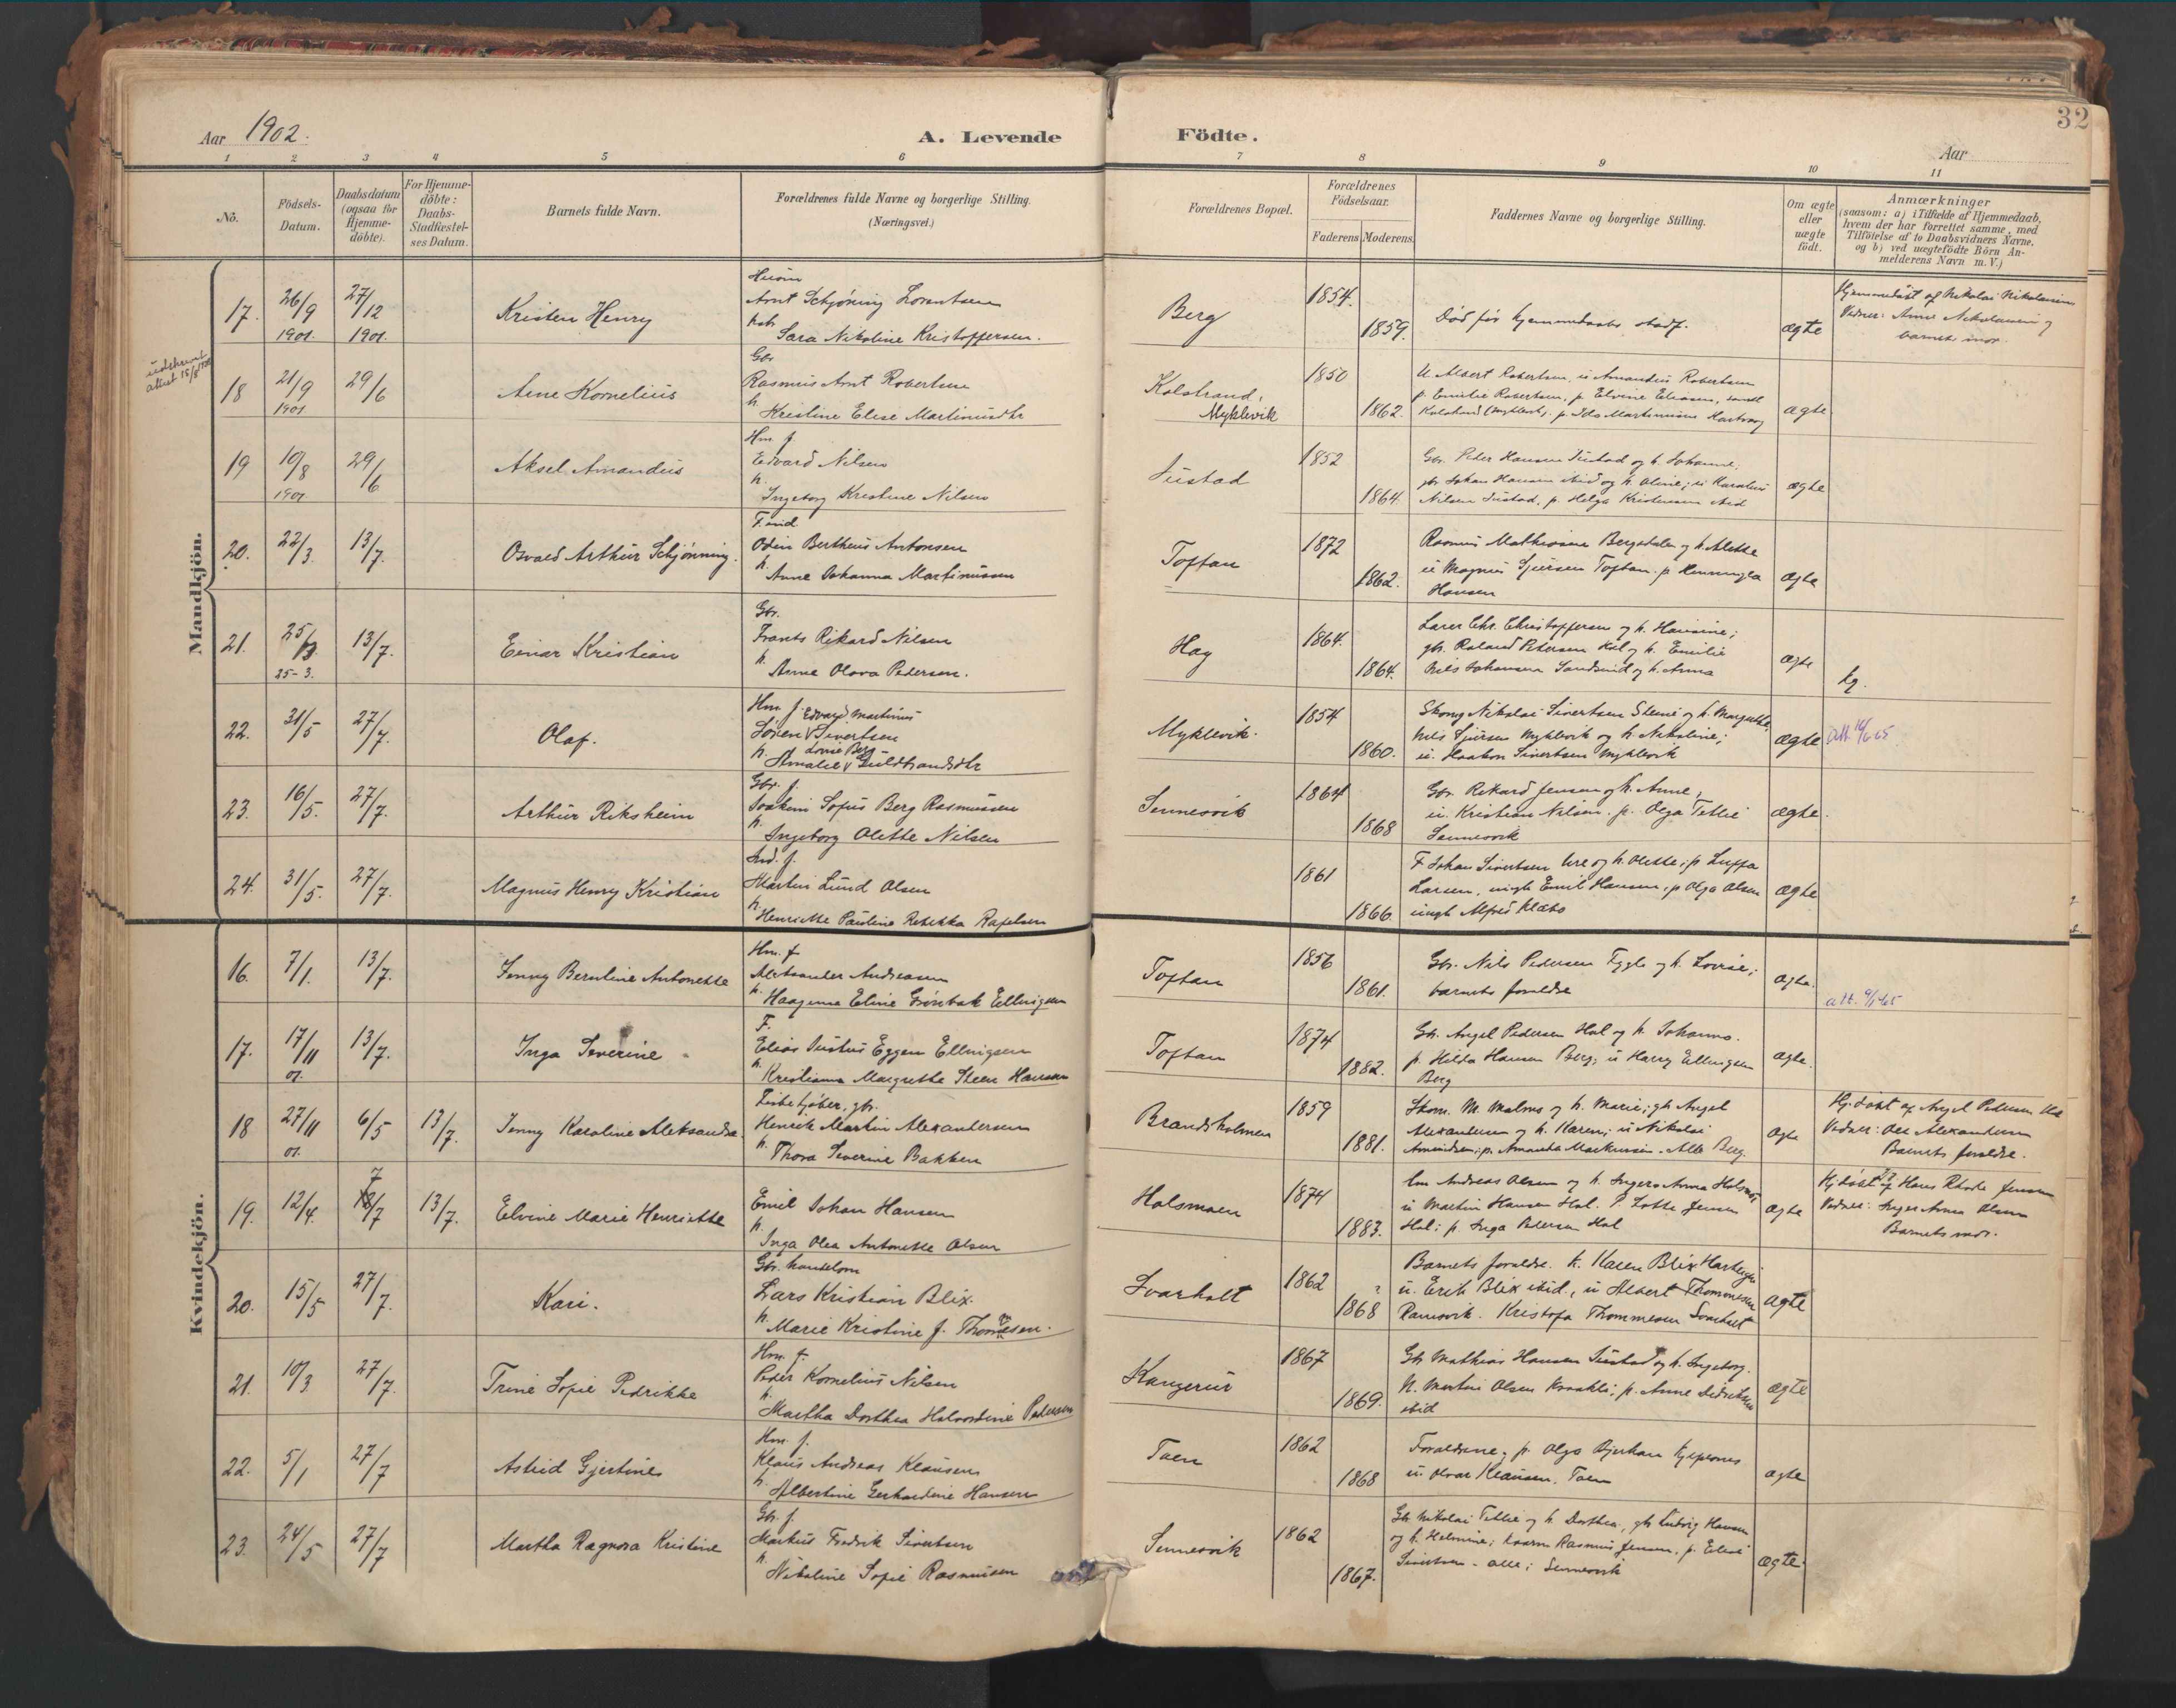 Aar 1902.
A. Levende
Födte.
32
Aar
1 2 3 4 5 6 7 8 9 10 11
No.
Födsels-
Datum.
Daabsdatum
(ogsaa för
Hjemme-
döbte).
For Hjemme-
döbte:
Daabs-
Stadfæstel-
ses Datum.
Barnets fulde Navn.
Forældrenes fulde Navne og borgerlige Stilling.
(Næringsvei.)
Forældrenes Bopæl.
Forældrenes
Födselsaar.
Faderens Moderens
Faddernes Navne og borgerlige Stilling.
Om ægte
eller
uægte
födt.
Anmærkninger
(saasom: a) i Tilfælde af Hjemmedaab,
hvem der har forrettet samme, med
Tilföielse af to Daabsvidners Navne,
og b) ved uægtefödte Börn An-
melderens Navn m. V.)
Mandkjön.
17. 26/9 1901. 27/12 1901.
Kristen Henry
Arnt Schjöning Lorentsen
Sara Nikoline Kristoffersen.
Berg
1854. 1859.
Död før hjemmedaabs stadf.
ægte
Hjemmedöbt af Nikolai Nikolaisen
Vidner: Anne Nikolaisen og
barnets mor.
18 21/9 1901 29/6
Arne Kornelius
Gbr
Rasmus Arnt Robertsen
h. Kristine Elise Martinusdtr
Kolstrand,
Myklevik
1850 1862.
U. Albert Robertsen, u Amandus Robertsen
p. Emilie Robertsen, p. Elvine Eliasen, samtl
ægte
19 10/8 1901 29/6
Aksel Amandus
Hm. f
Edvard Nilsen
h. Ingeborg Kristine Nilsen
Justad
1852 1864.
Gbr. Peder Hansen Justad og h. Johanne;
gbr Johan Hansen ibid og h. Oline;
Nilsen Justad, p. Helga Kristensen ibid
ægte
20. 22/3. 13/7.
Osvald Arthur Schjönning.
Odin Bertheus Antonsen
h. Anne Johanna Martinussen
Toftan
1872 1862.
Rasmus Mathisen Bergsdalen og h. Alette
u Magnus Sjursen Toftan. p Henningea
Hansen
ægte
21. 25/3 25-3. 13/7.
Einar Kristian
Gbr.
Frants Rikard Nilsen
h. Anne Olava Pedersen.
Hag
1864. 1864.
Lærer Chr. Christoffersen og h. Hansine;
gbr. Roland Petersen Hol og h. Emilie
Nils Johansen Sandsund og h. Anna
ægte
kg.
22. 31/5 27/7.
Olaf.
Hm f. Edvard Martinus
Sören Sivertsen
Lovise Berg
h. Amalie Guldbrandsdtr
Myklevik.
1854 1860.
Skomg Nikolai Sivertsen Steine og h. Margrethe,
Nils Sjursen Myklevik og h. Nikoline;
u. Haakon Sivertsen Myklevik
ægte
23. 16/5. 27/7.
Arthur Riksheim
Gbr. f.
Joakim Sofus Berg Rasmussen
h. Ingeborg Olette Nilsen
Sennesvik
1864 1868
Gbr. Rikard Jensen og h. Anne,
u. Kristian Nilsen. p. Olga Tellie
Sennesvik
ægte.
24. 31/5. 27/7.
Magnus Henry Kristian
Ind. f.
Martin Lund Olsen
h. Henriette Pauline Rebekka Rafelsen
1861 1866
F Johan Sivertsen Ure og h. Olette; p Luffa
Larsen, ungk Emil Hansen, p Olga Olsen
ungk Alfred Klæbo
ægte
Kvindekjön.
16. 7/1. 13/7.
Jenny Berntine Antonette
Hm. f
Aleksander Andreassen
h. Haagine Eline Grönbak Ellingsen
Toftan
1856 1861.
Gbr. Nils Pedersen Eggle og h. Lovise;
barnets foreldre
ægte.
17. 17/11 01. 13/7.
Inga Severine
F.
Elias Justus Eggen Ellingsen
h. Kristianna Margrethe Steen Hansen
Toftan
1874 1882.
Gbr. Angel Pedersen Hol og h. Johanna.
p. Hilda Hansen Berg; u Harry Ellingsen
Berg
ægte.
18 27/11 01. 6/5 13/7.
Jenny Karoline Aleksandra.
Fiskekjöber, gbr.
Henrik Martin Alexandersen
h. Thora Severine Bakken
Brandsholmen
1859 1881.
Skom. M. Malms og h. Marie; gbr Angel
Alexandersen og h. Karen; u Nikolai
Amundsen; p. Amanda Markussen. Alle Berg.
ægte
Hj. döbt af Angel Pedersen Hol
Vidner: Ole Alexandersen
Barnets foreldre.
19. 12/4. 7/7 13/7.
Elvine Marie Henriette
Emil Johan Hansen
h. Inga Olea Antonette Olsen
Holsmoen
1874 1883.
Em Andreas Olsen og h. Inger Anna Holsmo,
u Martin Hansen Hol. P. Lotte Jensen
Hol; p Inga Petersen Hol
ægte
Hj döbt af Hans Rhode Jensen
Vidner: Inger Anna Olsen
Barnets mor.
20. 15/5 27/7.
Kari.
Gbr. handelsm
Lars Kristian Blix.
h. Marie Kristine f. Thomesen.
Svarholt
1862 ? 1868
Barnets foreldre. h. Karen Blix
u. Erik Blix ibid., u Albert Thommesen
Ramsvik. Kristofa Thommesen Svarholt
ægte
21. 10/3 27/7.
Trine Sofie Pedrikke
Hm. f.
Peder Kornelius Nilsen
h. Martha Dorthea Halvordine Pedersen
Kangerur
1867 1869.
Gbr Mathias Hansen Justad og h. Ingeborg.
N. Martin Olsen Kraakli, p. Anne Didriksen
ibid
ægte
22. 5/1 27/7
Astrid Gjertine
Hm. f.
Klaus Andreas Klausen
h. Albertine Gerhardine Hansen
Taen
1862 1868
Foreldrene; p. Olga Bjerkan
u. Olvar Klausen. Taen
ægte
23. 24/5 27/7
Martha Ragnora Kristine
Gbr. f.
Markus Fredrik Sivertsen
h. Nikoline Sofie Rasmussen
Sennesvik
1862 1867.
Gbr Nikolai Tellie og h. Dorthea, gbr Ludvig Hansen
og h. Helmine; Rasmus Jensen, p.
Sivertsen - alle i Sennesvik
ægte